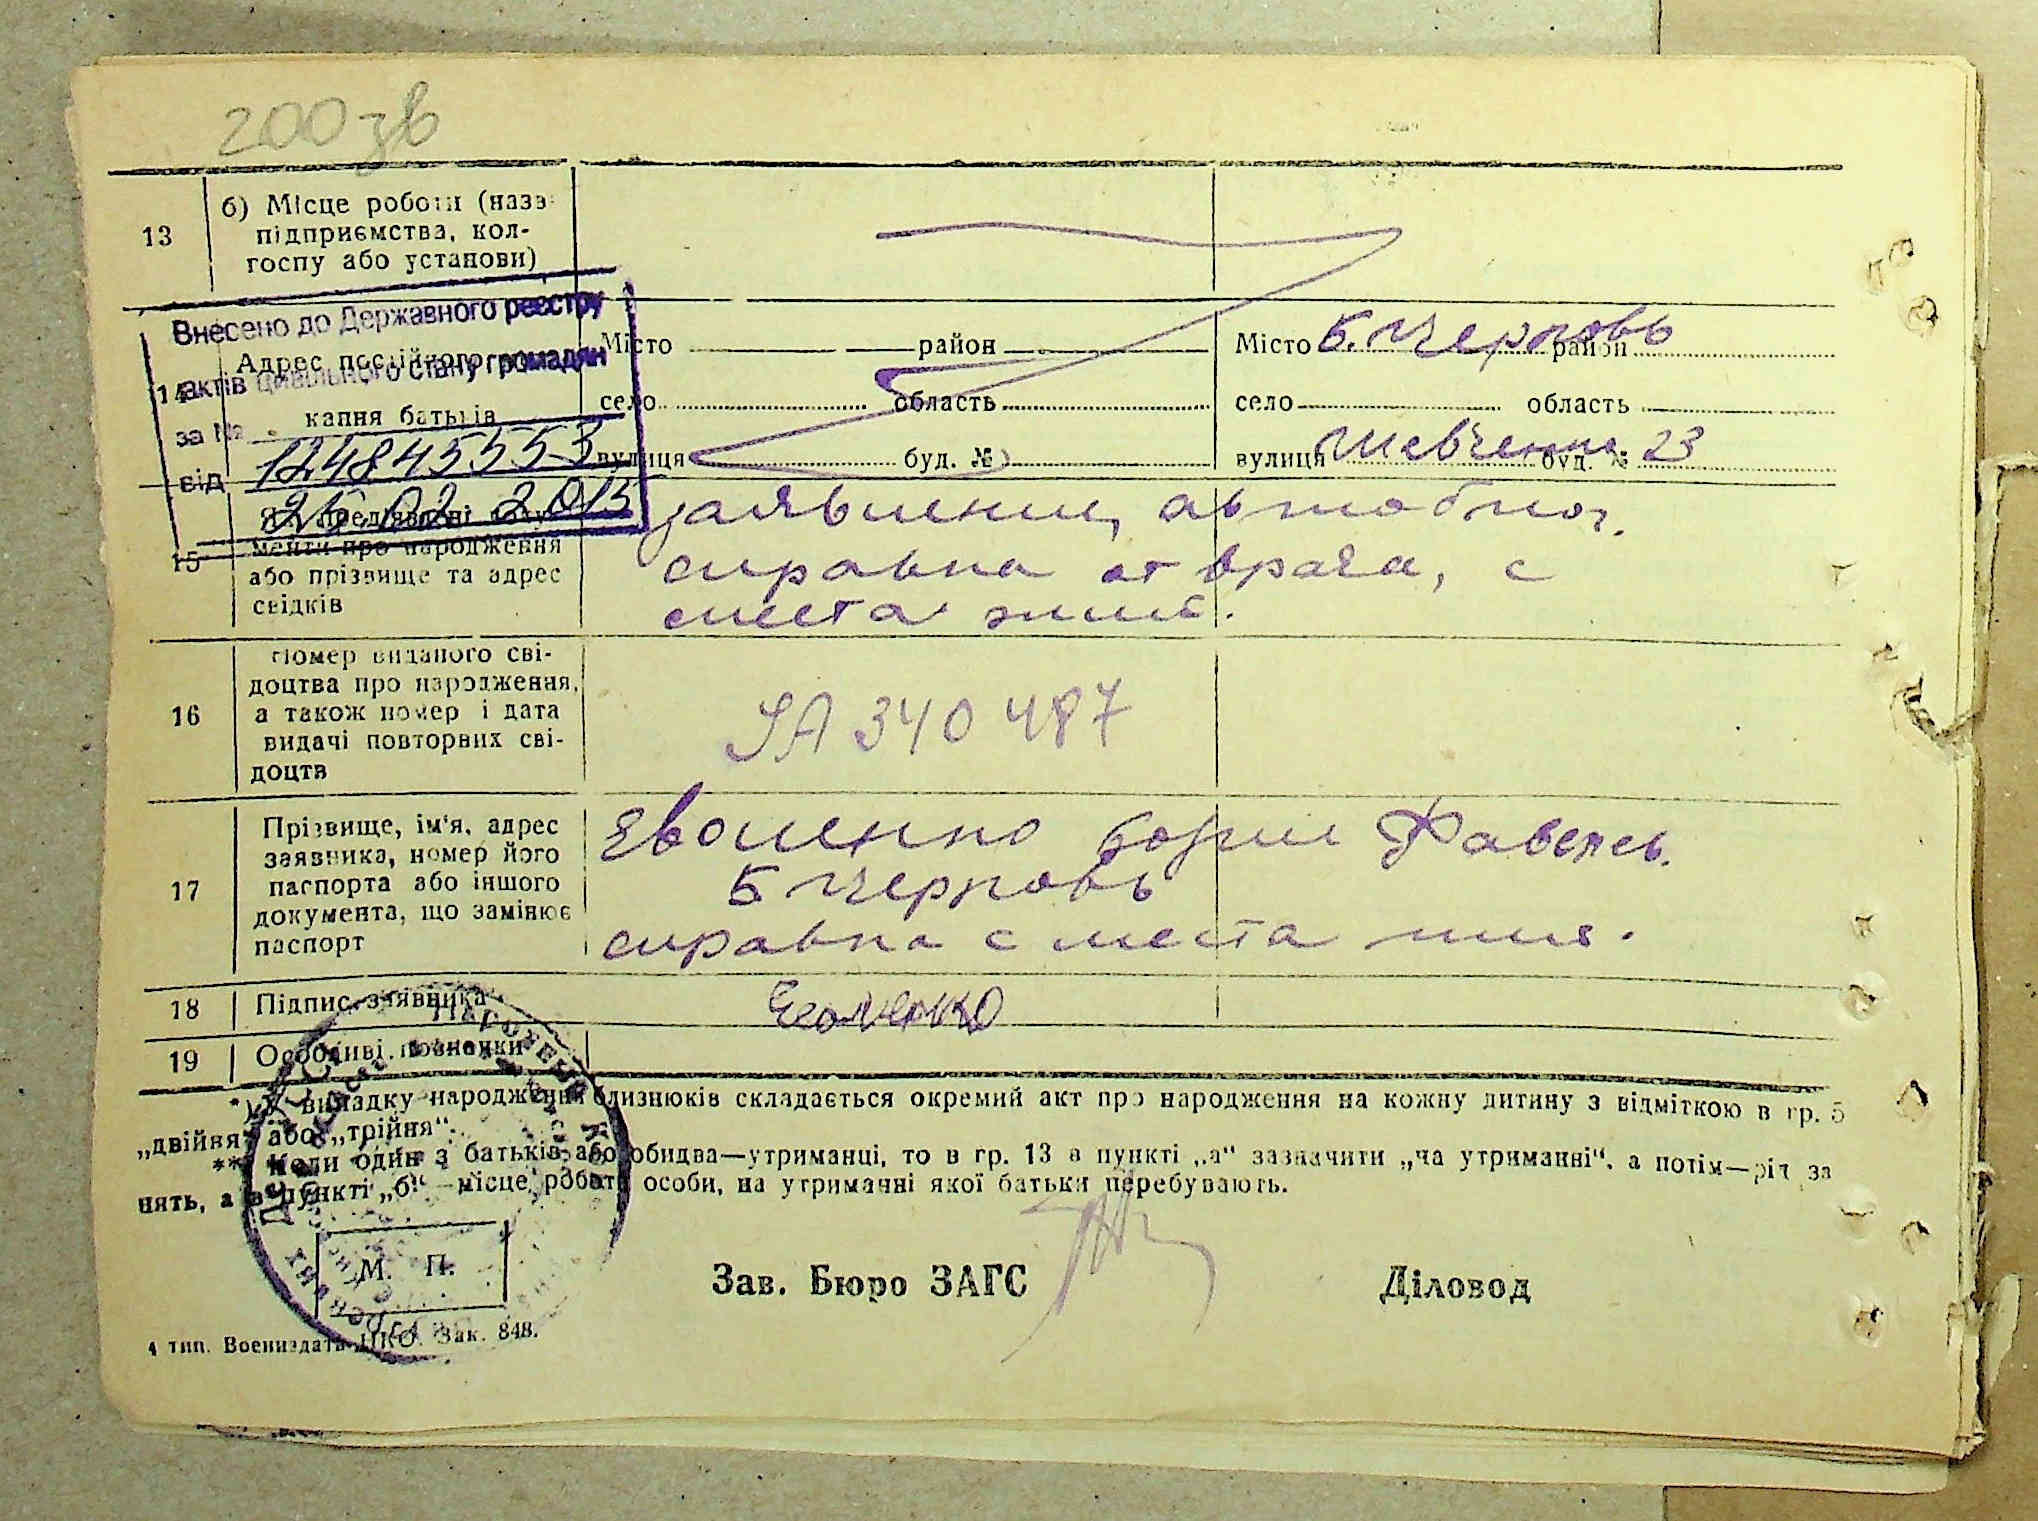 200 зв
13
б) Місце роботи (назв
підприємства, кол-
госпу або установи)
Внесено до Державного реєстру
актів цивільного стану громадян
за №
124845553
від
25.02.2015
14
Адрес постійного
кання батьків
Місто район
село область
вулиця буд. №
Місто Б. Церковь район
село область
вулиця Шевченка буд. № 23
15
менти про народження
або прізвище та адрес
свідків
заявление, автобиог.
справка от врача, с
места жит.
16
Номер виданого сві-
доцтва про народження,
а також номер і дата
видачі повторних сві-
доцтв
ЯА 340487
17
Прізвище, ім'я, адрес
заявника, номер його
паспорта або іншого
документа, що замінює
паспорт
Борис
Б Церковь
справка с места
18
Підпис заявника
19
Особливі позначки
*) У випадку народження близнюків складається окремий акт про народження на кожну дитину з відміткою в гр. 5
„двійня“ або „трійня“.
** Коли один з батьків або обидва—утриманці, то в гр. 13 в пункті „а“ зазначити „на утриманні“, а потім—рід за
нять, а в пункті „б“ —місце роботи особи, на утриманні якої батьки перебувають.
М. П.
Зав. Бюро ЗАГС Діловод
4 тип. Воениздата НКО. Зак. 848.